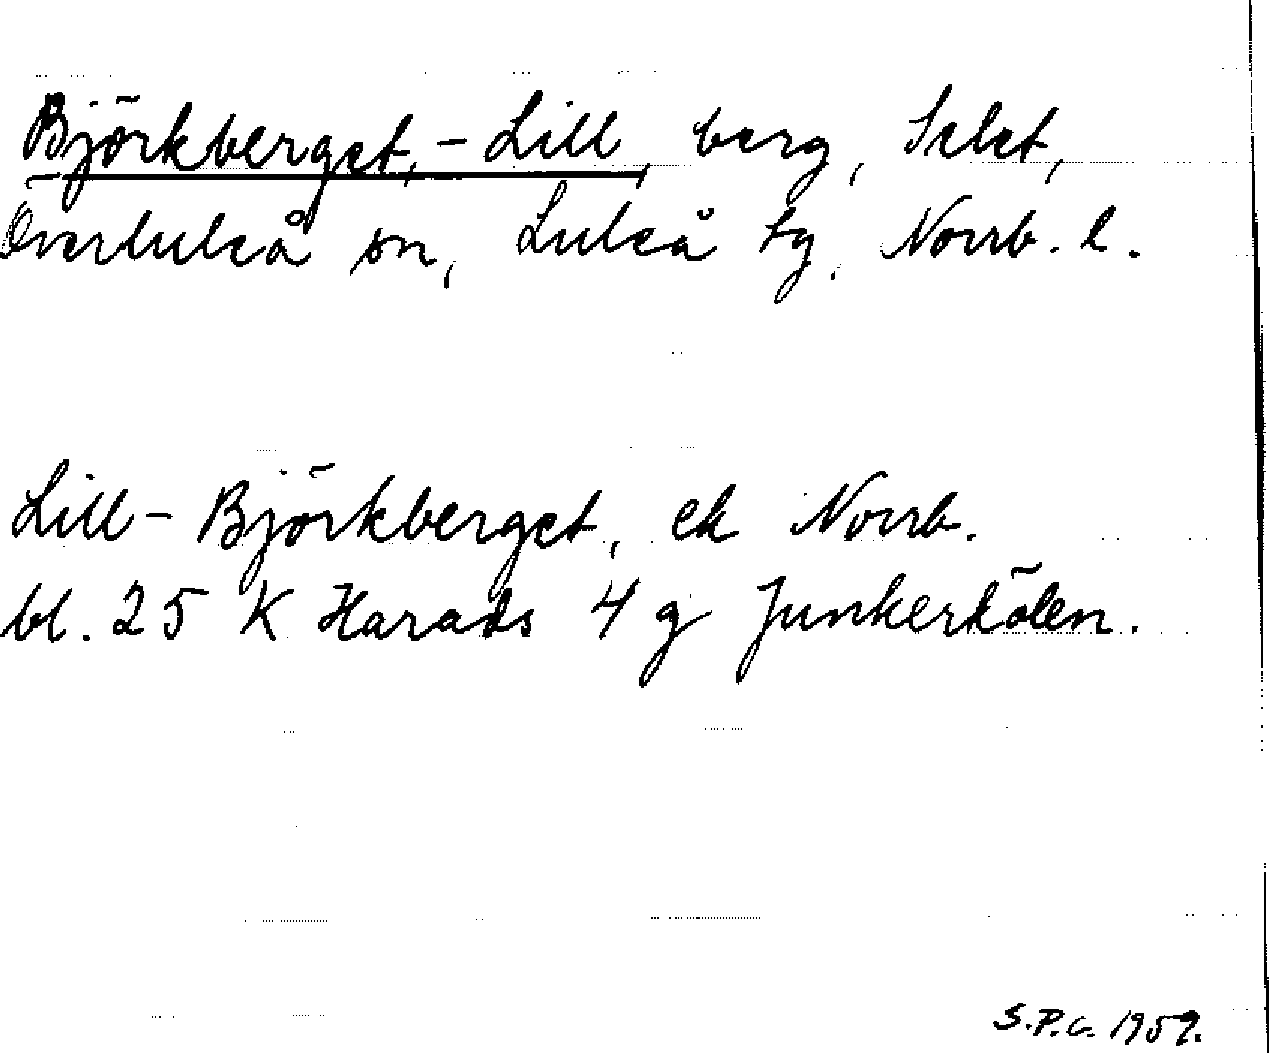 Björkberget, - Lill, berg, Selet,
Överluleå sn, Luleå tg, Norrb. l.
Lill - Björkberget, ek Norrb.
bl. 25 K Harads 4 g Junkerkölen.
S.P.G. 1959.